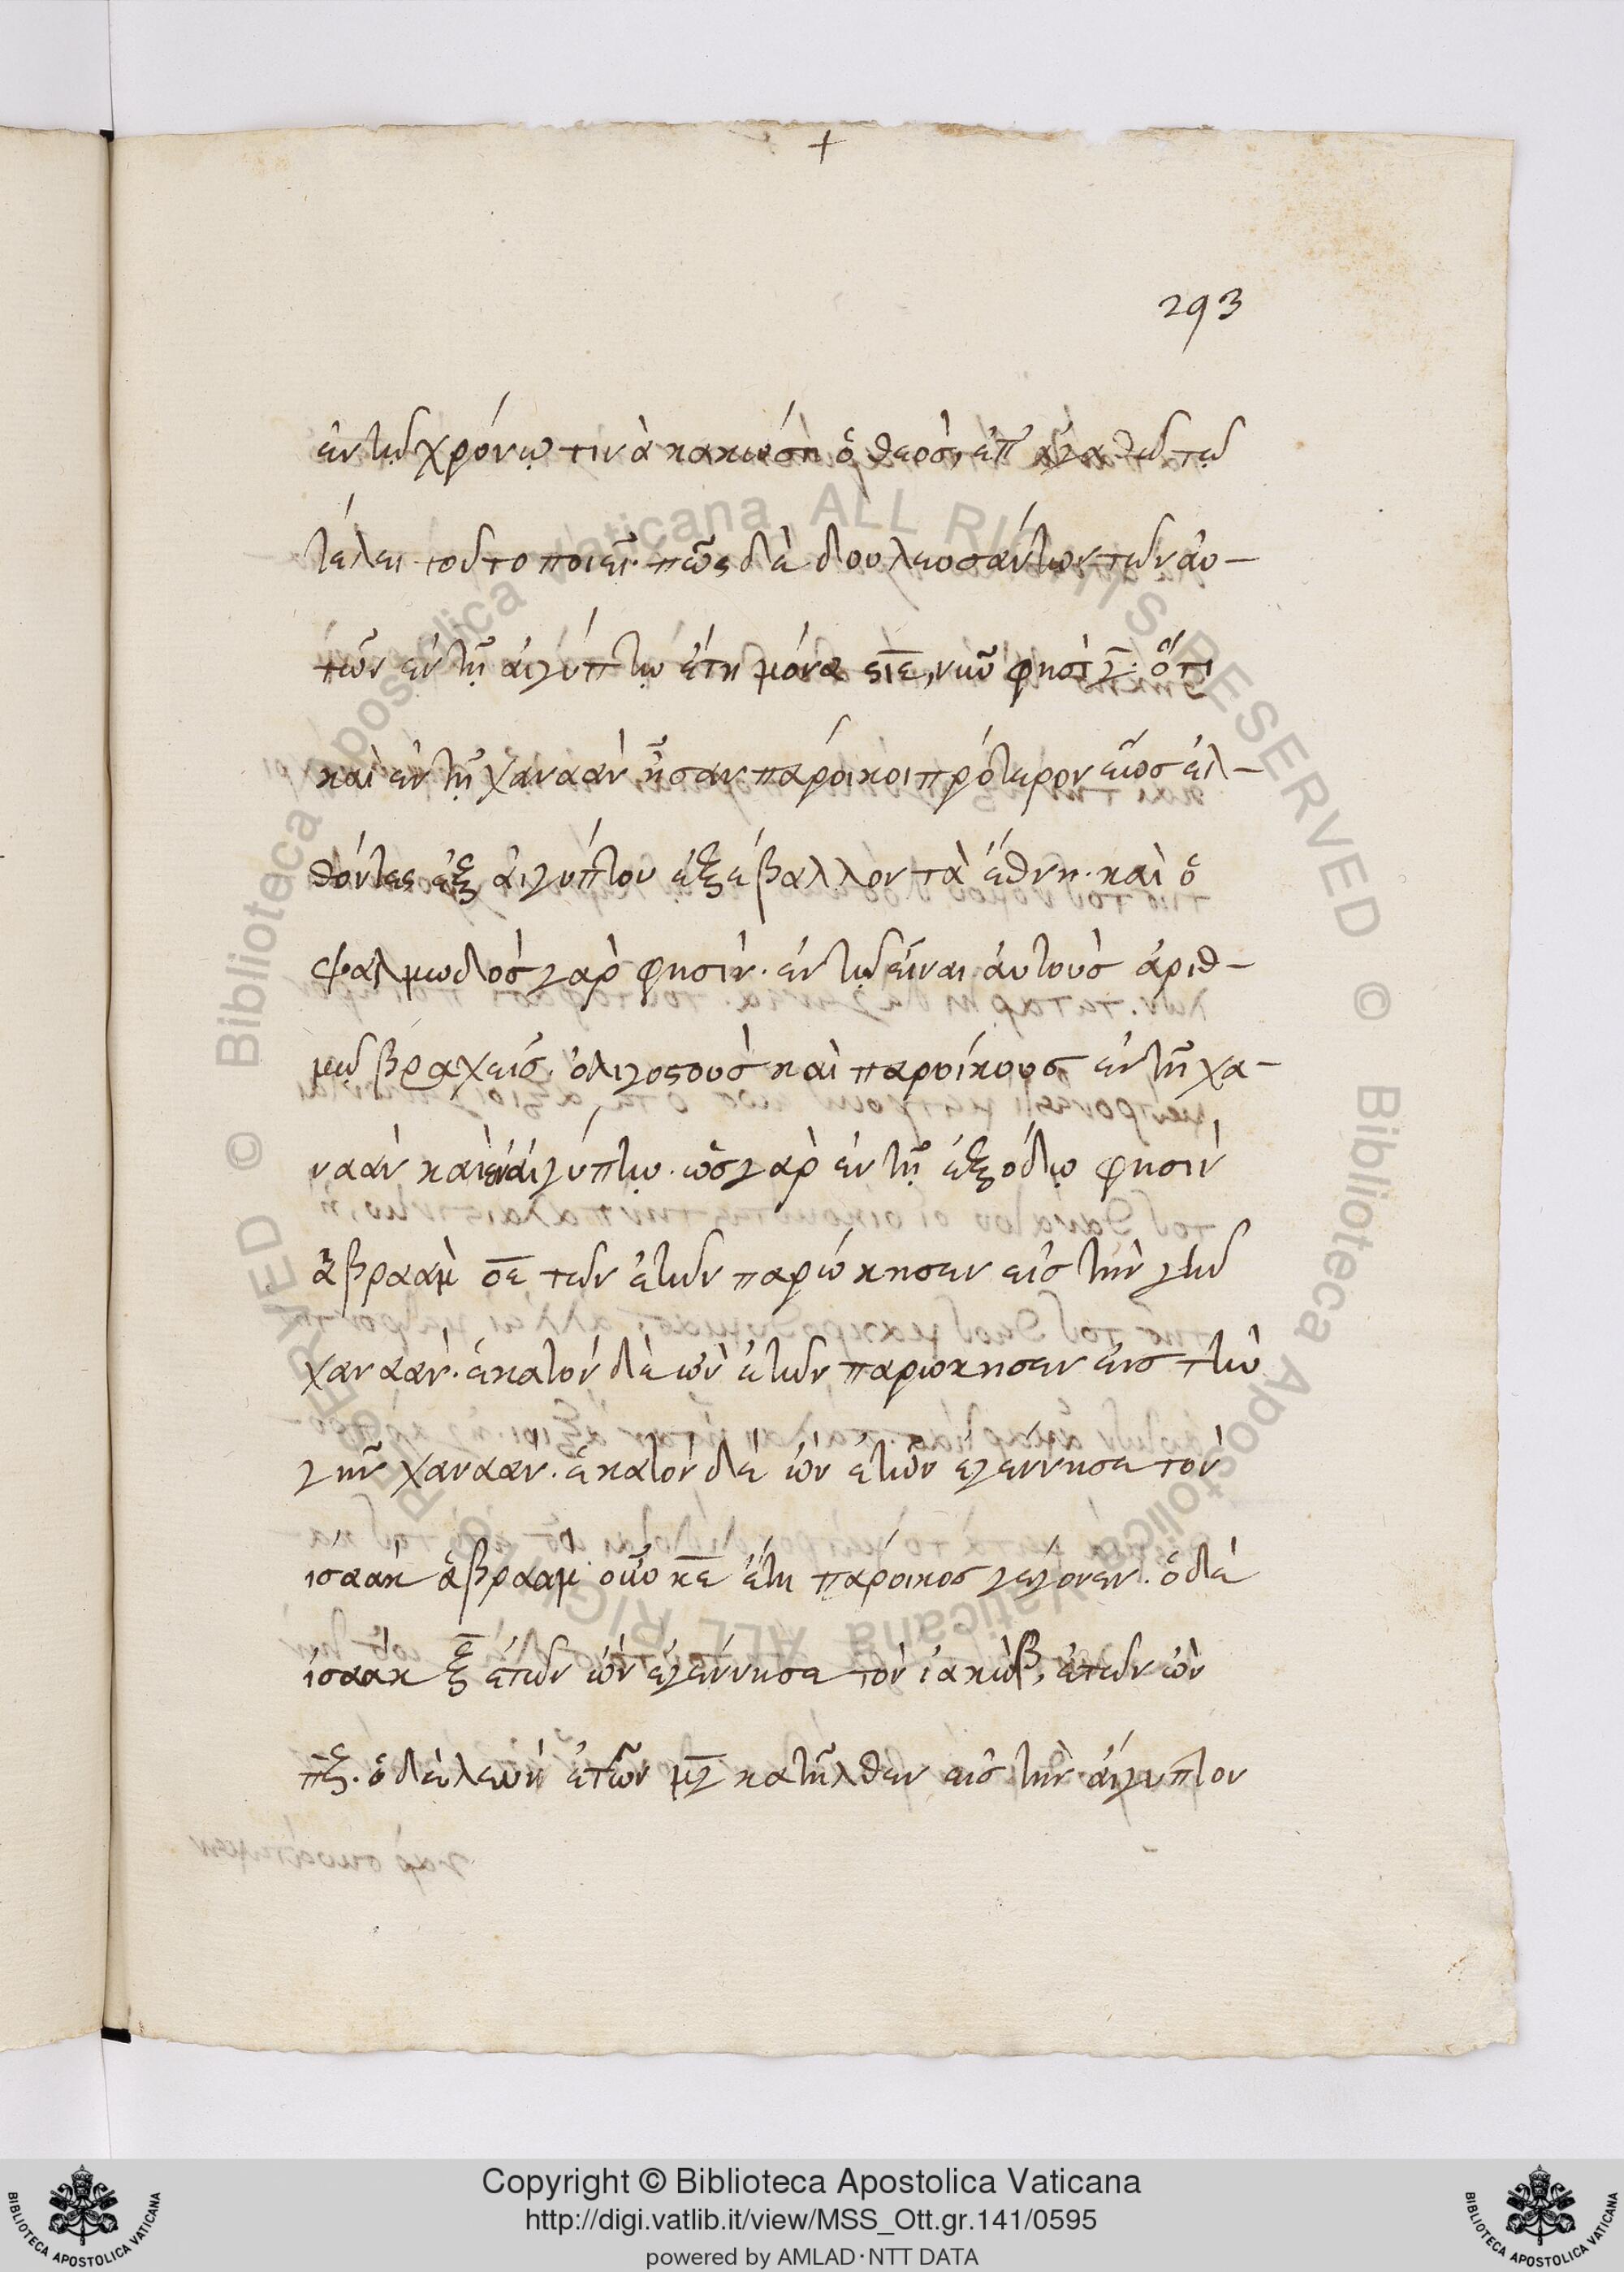 +
293
ἐν τῷ χρόνῳ τινὰ κακώσῃ ὁ θεὸς, ἐπ' ἀγαθῷ τῷ
τέλει τοῦτο ποιεῖ. πῶς δὲ δουλευσάντων τῶν αὐ-
τῶν ἐν τῇ αἰγύπτῳ ἔτη μόνα σιε, νῦν φησὶ υ. ὅτι
καὶ ἐν τῇ χαναὰν ἦσαν πάροικοι πρότερον ἕως ἐλ-
θόντες ἐξ αἰγύπτου ἐξέβαλλον τὰ ἔθνη. καὶ ὁ
ψαλμωδὸς γὰρ φησιν. ἐν τῷ εἶναι αὐτοὺς ἀριθ-
μῷ βραχεῖς, ὀλιγοςοὺς καὶ παροίκους ἐν τῇ χα-
ναὰν καὶ ἐν αἰγύπτῳ. ὡς γὰρ ἐν τῇ ἐξόδῳ φησὶν
ἀβραὰμ οε τῶν ἐτῶν παρώκησεν εἰς τὴν γῆν
χαναάν. ἑκατὸν δὲ ὢν ἐτῶν παρωκησεν εἰς τὴν
γῆν χαναάν. ἑκατὸν δὲ ὢν ἐτῶν ἐγέννησε τὸν
ἰσαὰκ ἀβραὰμ οὖν κε ἔτη πάροικος γέγονεν. ὁ δὲ
ἰσαὰκ ξ ἐτῶν ὢν ἐγέννησε τὸν ἰακὼβ, ἐτῶν ὢν
πξ. ὁ δὲ λευὴ ἐτῶν μγ κατῆλθεν εἰς τὴν αἴγυπτον
Copyright © Biblioteca Apostolica Vaticana
http://digi.vatlib.it/view/MSS_Ott.gr.141/0595
powered by AMLAD·NTT DATA